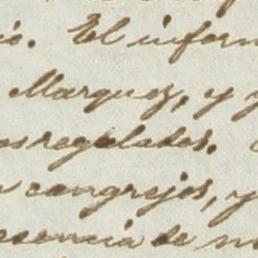 io. El inform
Marquez, y y
as regalades.
n cangrejos, y
esencia de m